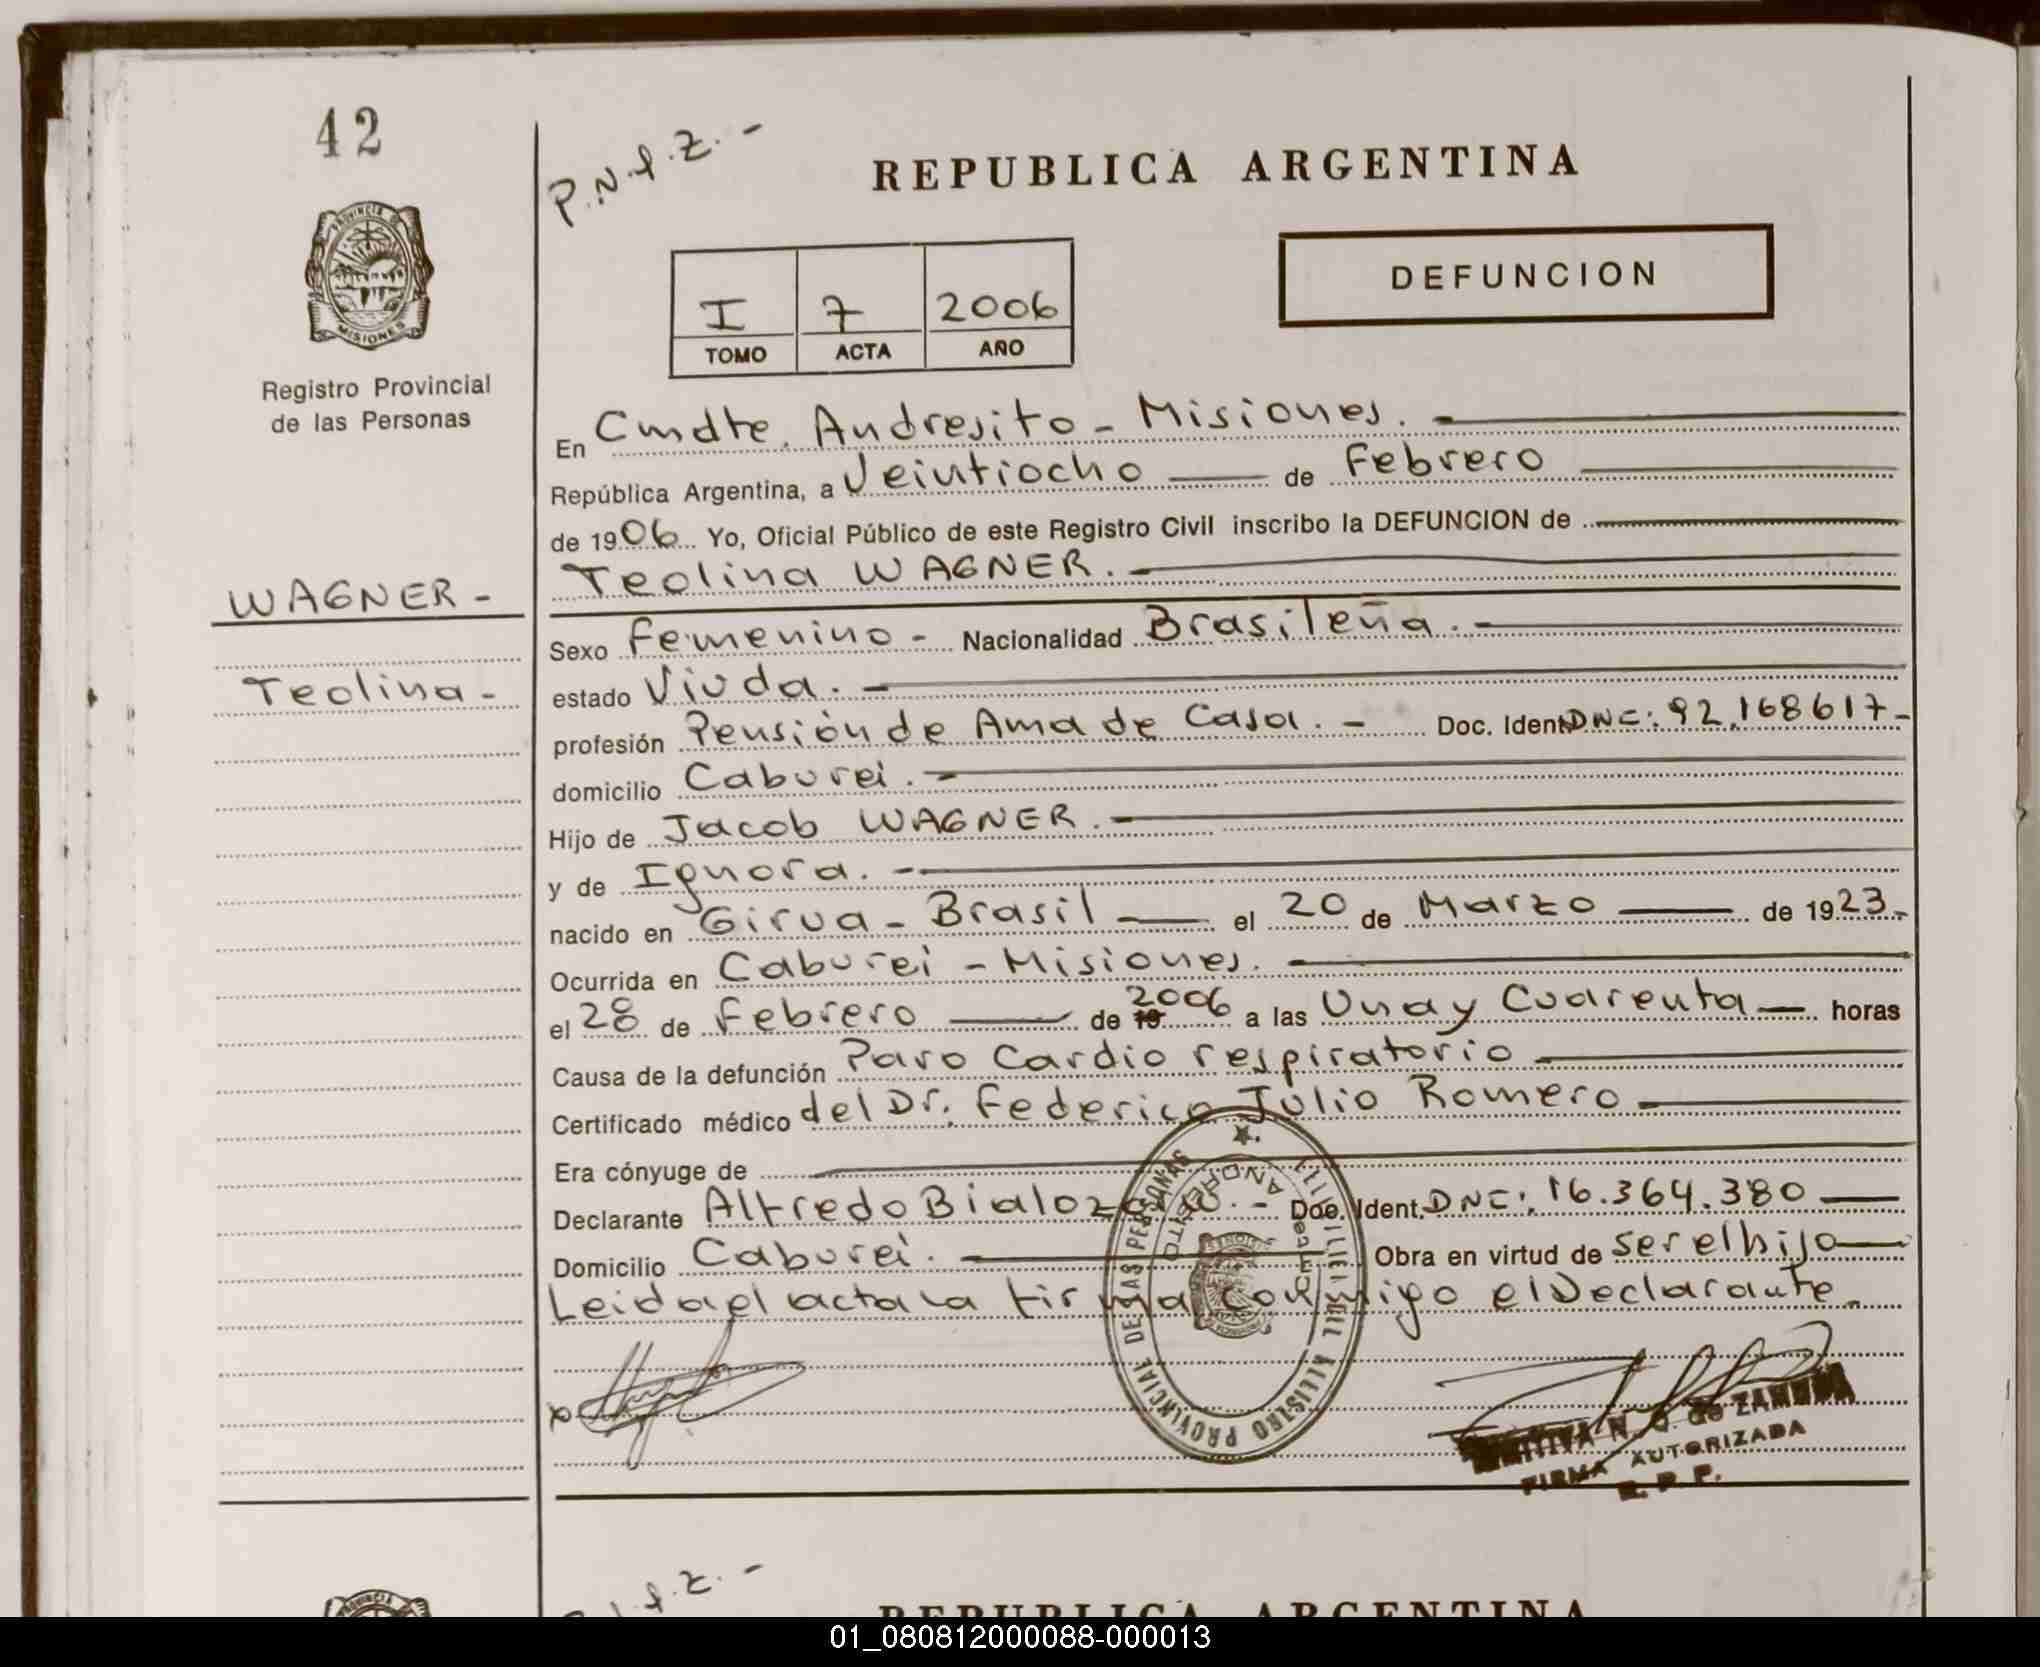 42
P.N.f.Z. -
REPUBLICA ARGENTINA
PROVINCIA DE
MISIONES
DEFUNCION
I 7 2006
TOMO ACTA AÑO
Registro Provincial
de las Personas
En Cmdte. Andresito - Misiones.
República Argentina, a Veintiocho de Febrero
de 1906 Yo, Oficial Público de este Registro Civil inscribo la DEFUNCION de
Teolina WAGNER.
WAGNER -
Sexo Femenino - Nacionalidad Brasileña. -
Teolina -
estado Viuda. -
profesión Pensión de Ama de Casa. - Doc. Ident. DNE: 92.168617 -
domicilio Caburei. -
Hijo de Jacob WAGNER. -
y de Ignora. -
nacido en Girua - Brasil el 20 de Marzo de 1923. -
Ocurrida en Caburei - Misiones.
el 28 de Febrero de 19 2006 a las Una y Cuarenta horas
Causa de la defunción Paro Cardio respiratorio
Certificado médico del Dr. Federico Julio Romero
Era cónyuge de
Declarante Alfredo Doc. Ident. DNE: 16.364.380
Domicilio Caburei. Obra en virtud de ser el hijo
Leida el acta la firma conmigo el Declarante.
PROVINCIAL DE LAS PERSONAS
ANDRESITO
N. G. de
FIRMA AUTORIZADA
R. P. P.
f.z. -
REPUBLICA ARGENTINA
01_080812000088-000013